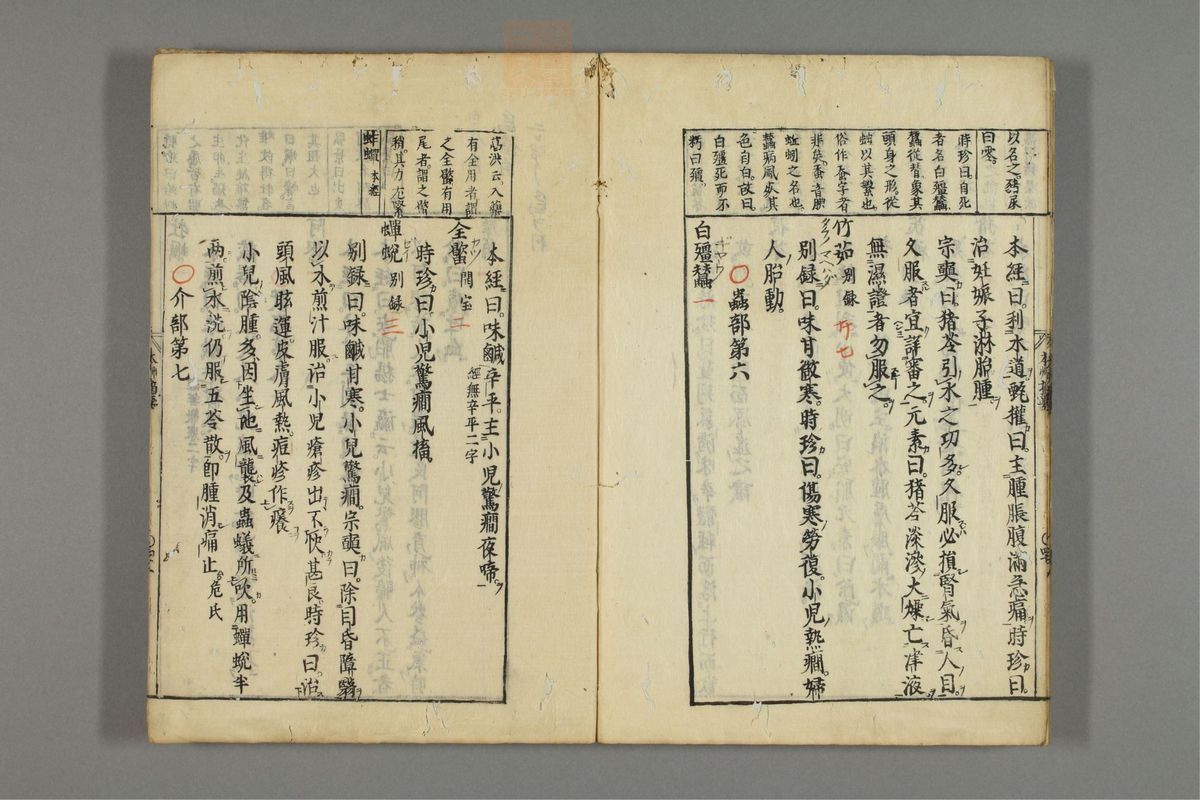 以名之。豬屎
曰零。
時珍曰自死
者名白殭蠶、
蠶從朁象其
頭身之形、從
䖵以其繁也、
俗作蚕字者
非矣蚕音腆
蚯蚓之名也、
蠶病風死其
色自白、故曰
白殭死而不
朽曰殭。
本經曰。利水道。甄權曰。主腫脹腹滿急痛時珍曰。
治妊娠子淋胎腫
宗奭曰。猪苓引水之功多。久服必損腎氣昏人目。
久服者宜詳審之元素曰。猪苓淡滲大燥亡津液
無濕證者勿服之。
竹茹 別録 竹七
別録曰。味甘微寒。時珍曰。傷寒勞復。小兒熱癇。婦
人胎動。
○蟲部第六
白殭蠶 一
葛洪云入藥
有全用者謂
之全蠍有用
尾者謂之蠍
梢。其力尤緊
蚱蟬 本經
本經曰。味鹹辛平。主小兒驚癇夜啼。
經無辛平二字
全蠍 開宝 二
時珍曰。小兒驚癇風搐。
蟬蛻 別録 三
別録曰。味鹹甘寒。小兒驚癇。宗奭曰。除目昏障翳。
以水煎汁服。治小兒瘡疹出不快甚良時珍曰。治
頭風眩運。皮膚風熱。痘疹作癢
小兒陰腫。多因坐地風襲及蟲蟻所吹用蟬蛻半
兩。煎水洗仍服五苓散。即腫消痛止 危氏
○介部第七